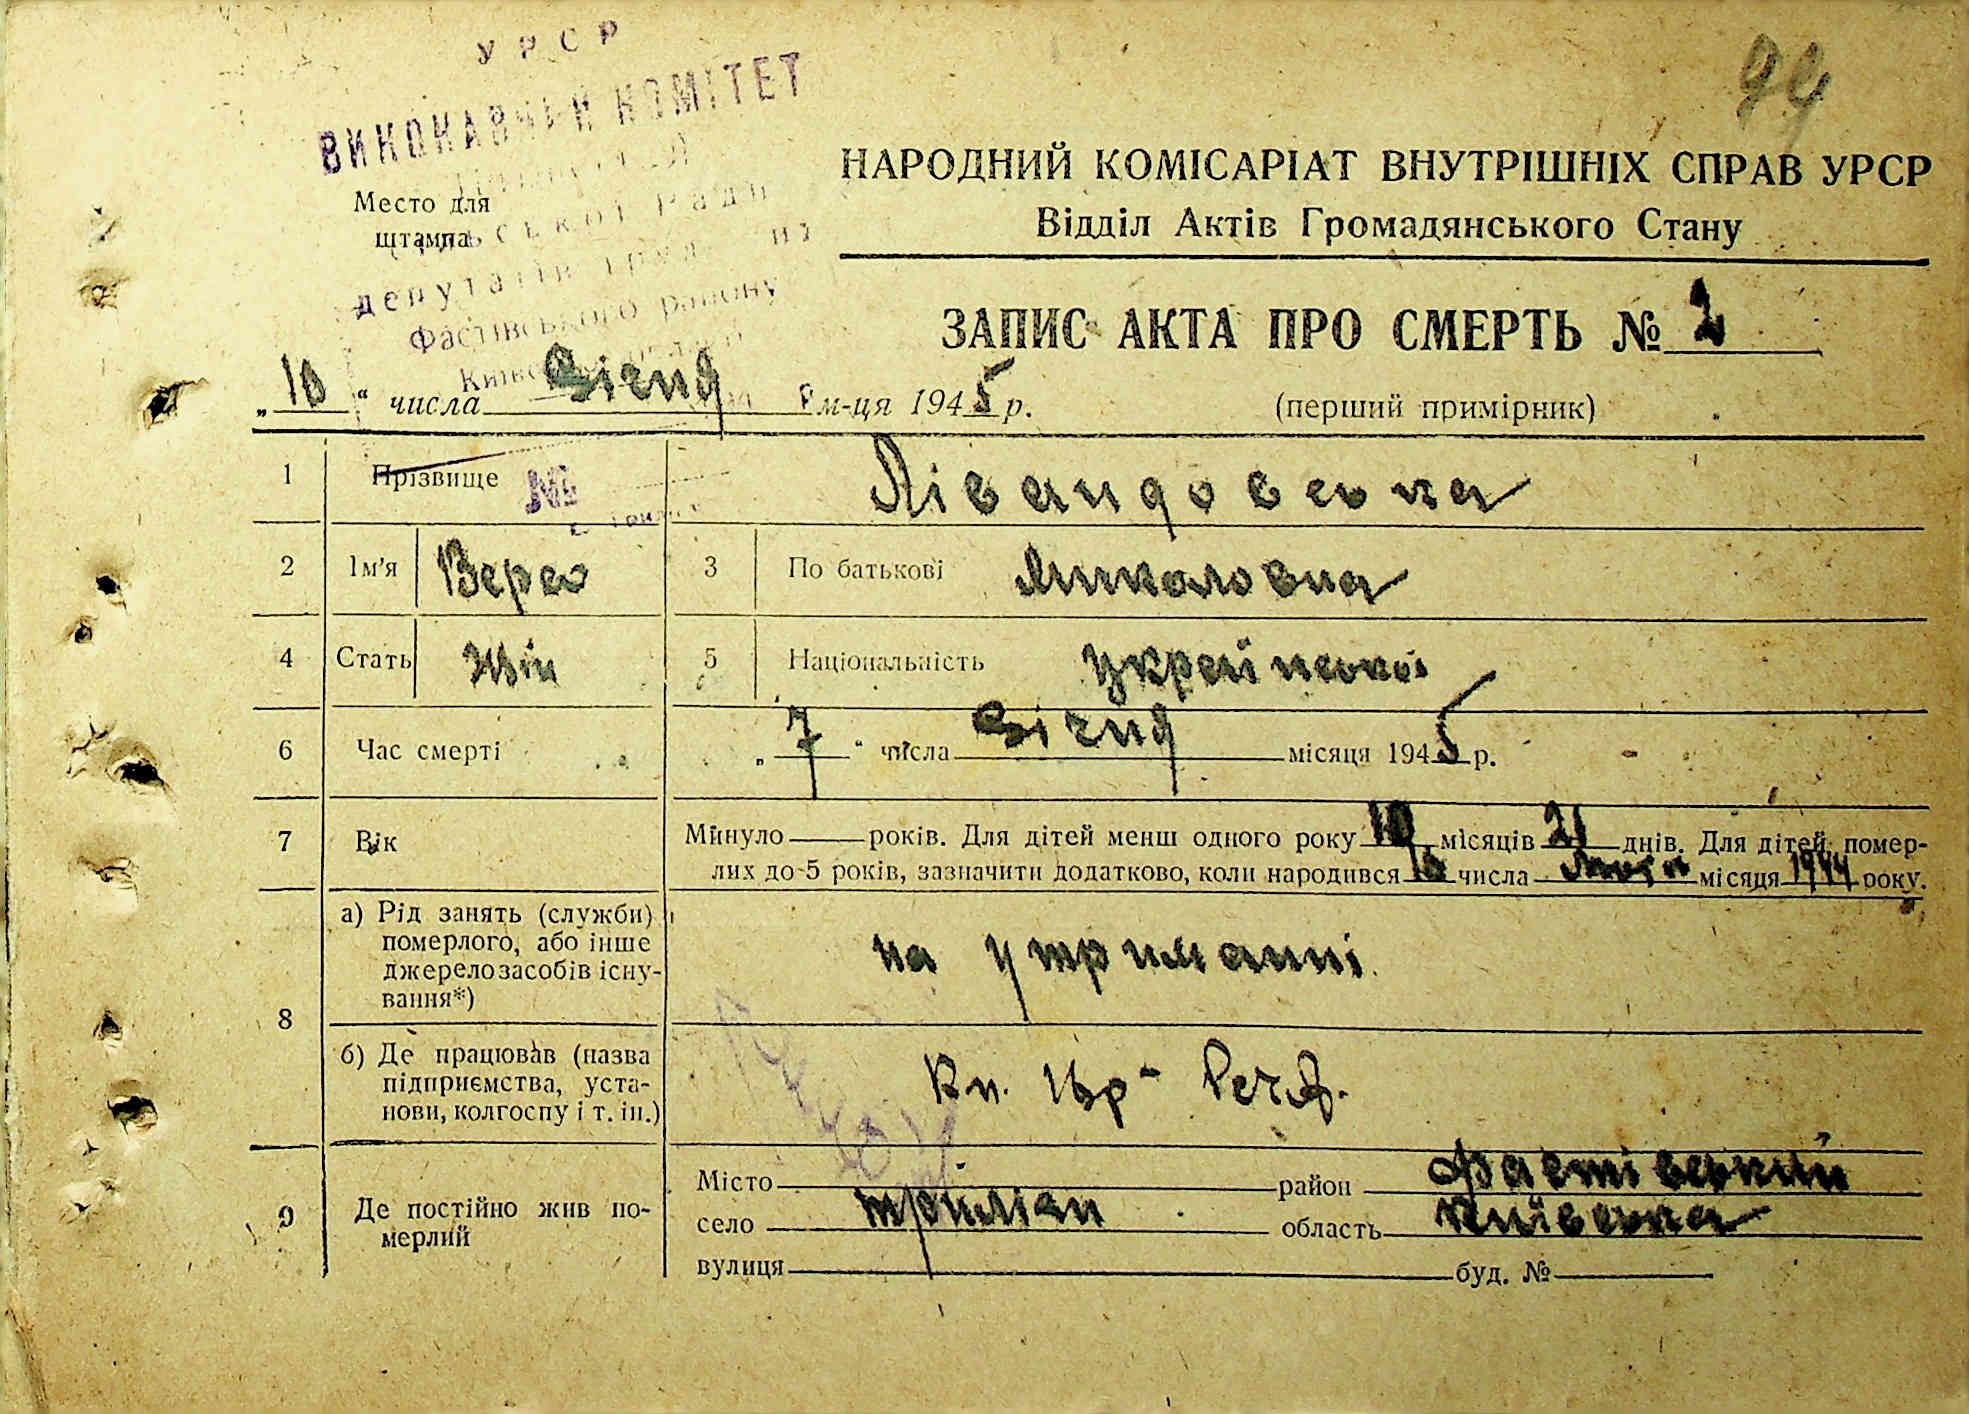 94
УРСР
ВИКОНАВЧИЙ КОМІТЕТ
сільської Ради
депутатів труд
Фастівського району
Київської області
Место для
штампа
НАРОДНИЙ КОМІСАРІАТ ВНУТРІШНІХ СПРАВ УРСР
Відділ Актів Громадянського Стану
ЗАПИС АКТА ПРО СМЕРТЬ № 2
„10“ числа січня м-ця 1945 р.
(перший примірник)
1 Прізвище Лівандовська
№
2 Ім'я Вера 3 По батькові Миколовна
4 Стать жін 5 Національність украйнської
6 Час смерті „7“ числа січня місяця 1945 р.
7 Вік Минуло років. Для дітей менш одного року 10 місяців 21 днів. Для дітей, помер-
лих до 5 років, зазначити додатково, коли народився 16 числа місяця 1944 року.
8 а) Рід занять (служби)
померлого, або інше
джерело засобів існу-
вання*)
на утриманні
б) Де працював (назва
підприємства, уста-
нови, колгоспу і т. ін.)
9 Де постійно жив по-
мерлий
Місто район Фастівський
село триліси область Київська
вулиця буд. №